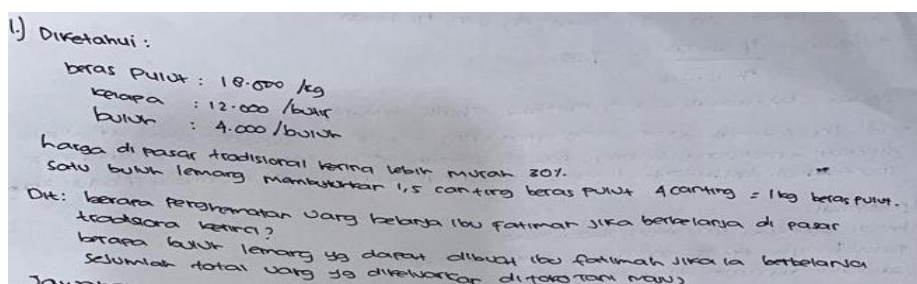 1.) Diketahui :
beras pulut : 18.000 /kg
kelapa : 12.000 /butir
buluh : 4.000 /buluh
harga di pasar tradisional kerinci lebih murah 30%.
Satu buluh lemang membutuhkan 1,5 canting beras pulut 4 canting = 1 kg beras pulut.
Dit: berapa penghematan uang belanja ibu fatimah jika berbelanja di pasar
tradisiona kerinci?
berapa buluh lemang yg dapat dibuat ibu fatimah jika ia berbelanja
sejumlah total uang yg dikeluarkan di toko Tani Maju?